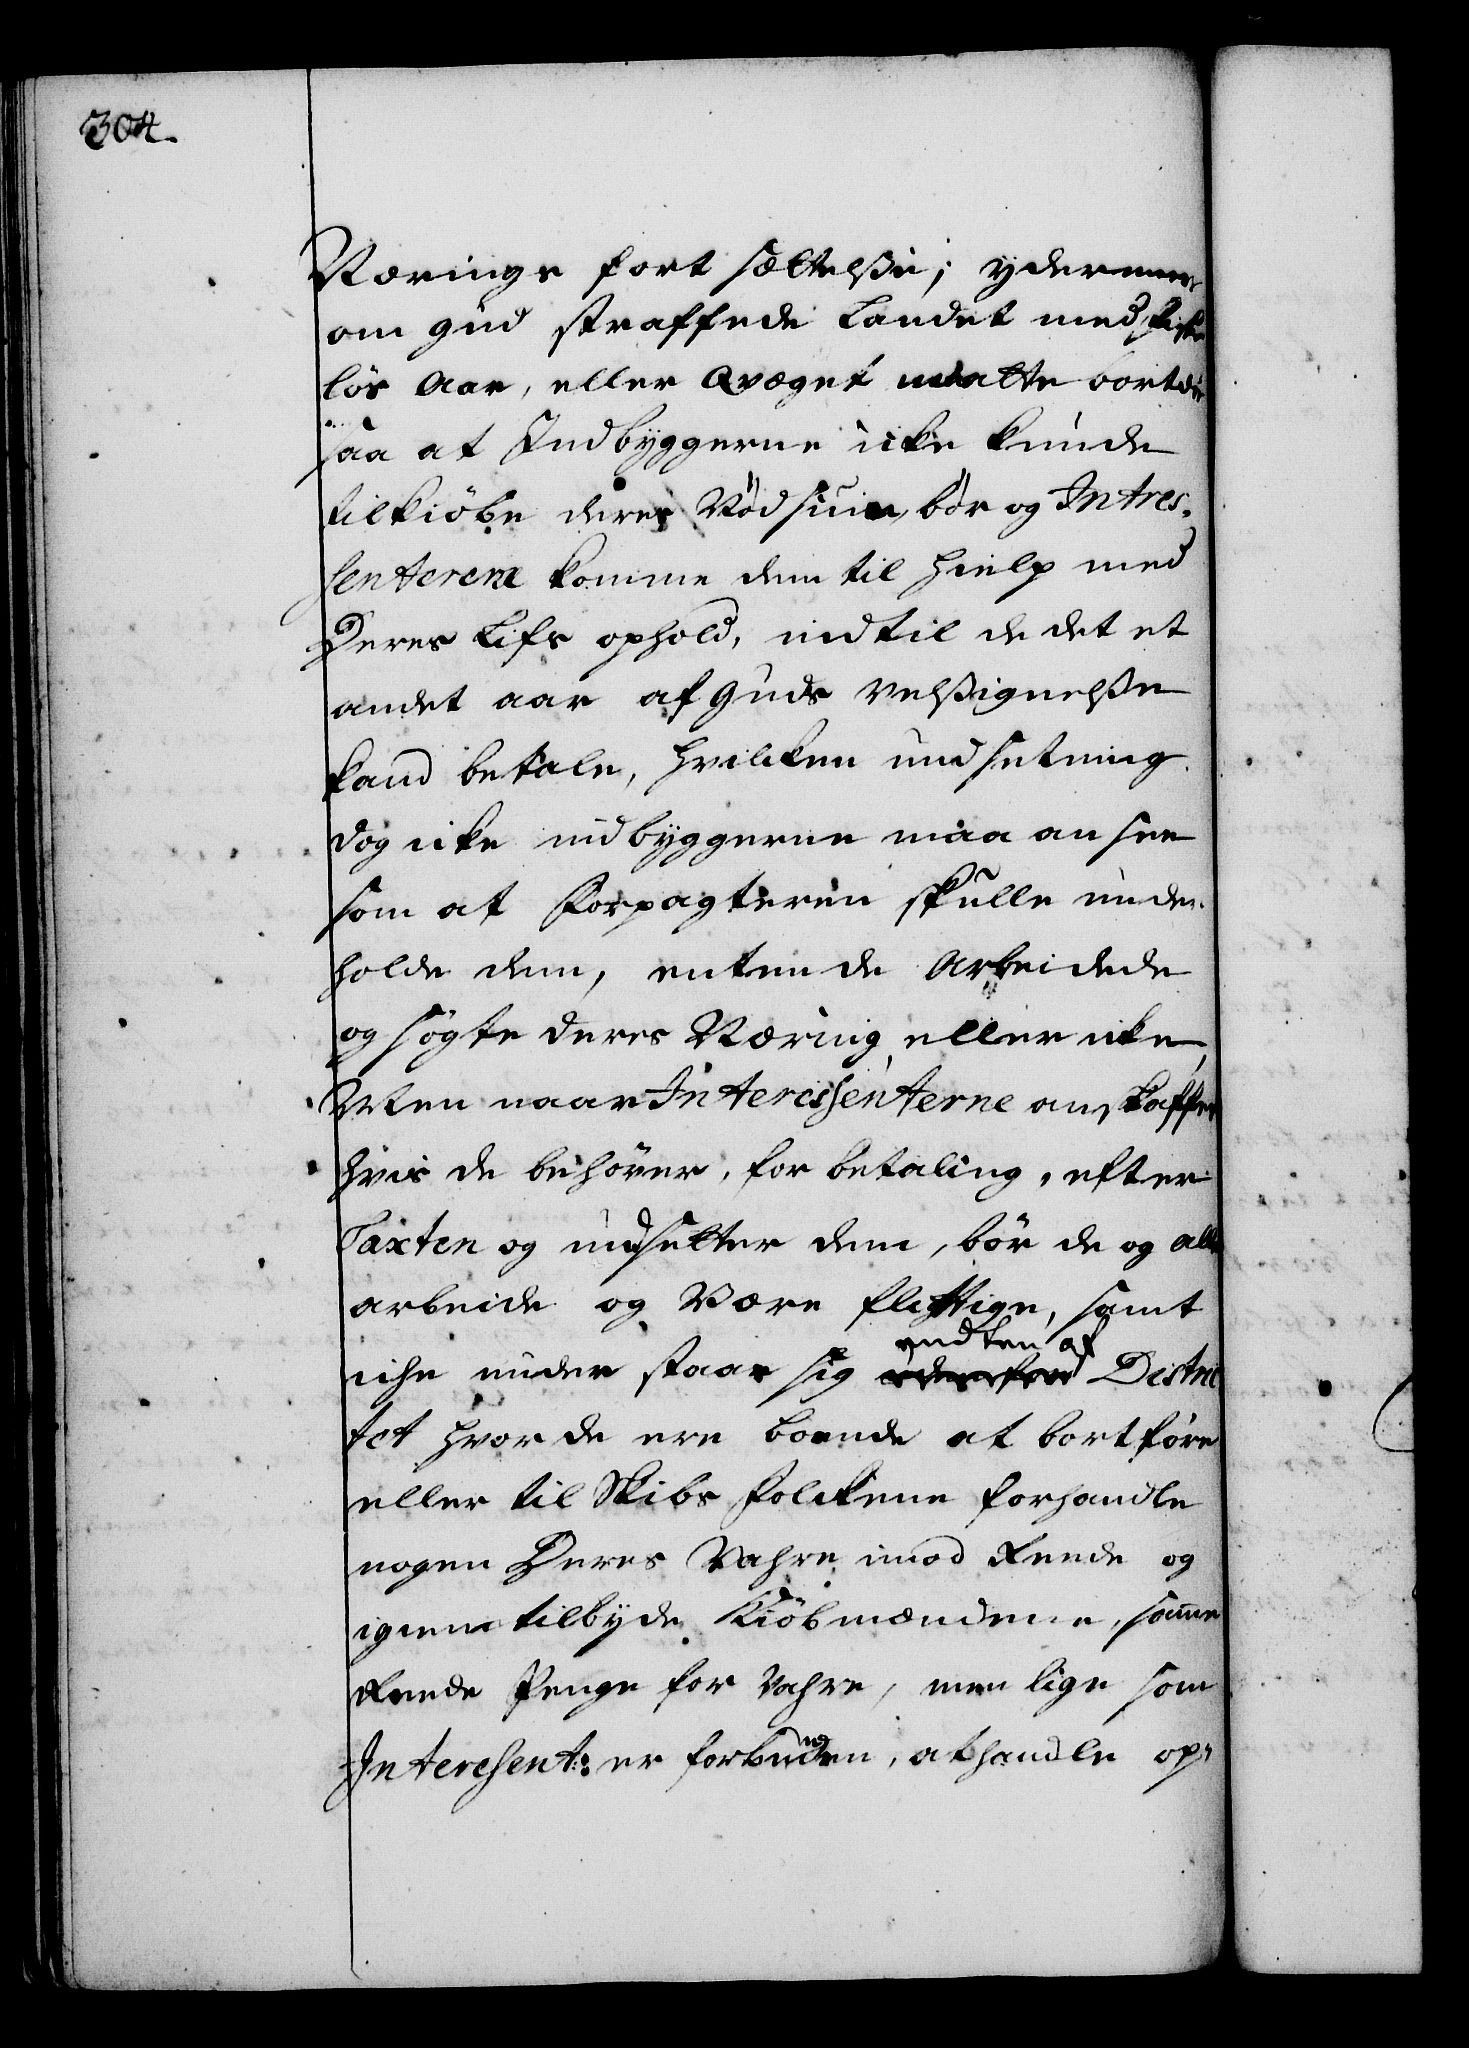 304.
Nærings fort sættelße; ydermeere
om gud straffede Landet med fiske
løs Aar, eller Qvæget maatte bortdøe
saa at Indbyggerne icke kunde
tilkiöbe deres Nödsuin, bör og Intres-
senterene komme dem til hielp med
Deres Lifs ophold, indtil de det et
andet aar af Guds velßignelße
kand betale, hvilcken undsetning
dog icke indbyggerne maa an see
som at Forpagteren skulle under
holde dem, enten de Arbeidede
og sögte deres Næring eller icke,
Men naar Interessenterne anskaffer
hvis de behöver, for betaling, efter
Taxten og undsetter dem, bör de og alle
arbeide og Være flittige, samt
iche under staar sig endten af Distric
tet hvor de ere boende at bortföre
eller til Skibs Folckene forhandle
nogen Deres Vahre imod Reede og
igien tilbyde Kiöbmændene, samme
Reede Penge for Vahre, men lige som
Interesent: er forbuden, at handle op-